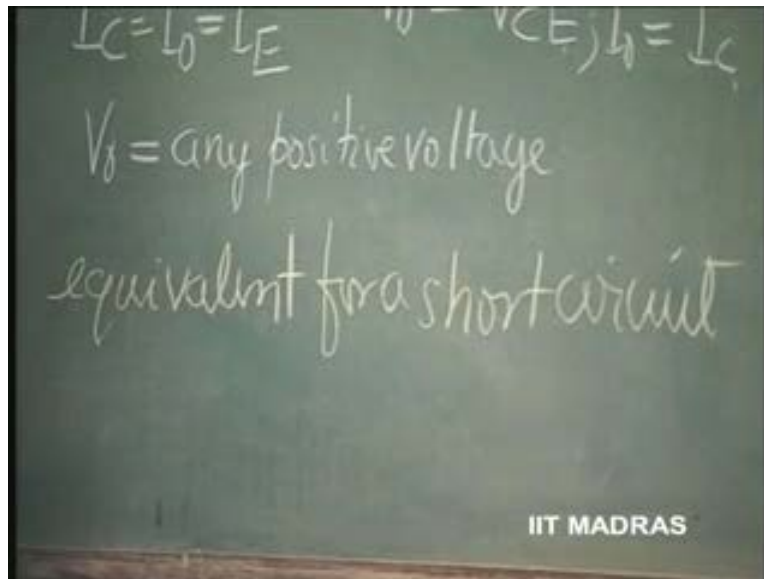 I_C = I_0 = I_E V_0 = V_CE; I_0 = I_C
V_γ = any positive voltage
equivalent for a short circuit
IIT MADRAS